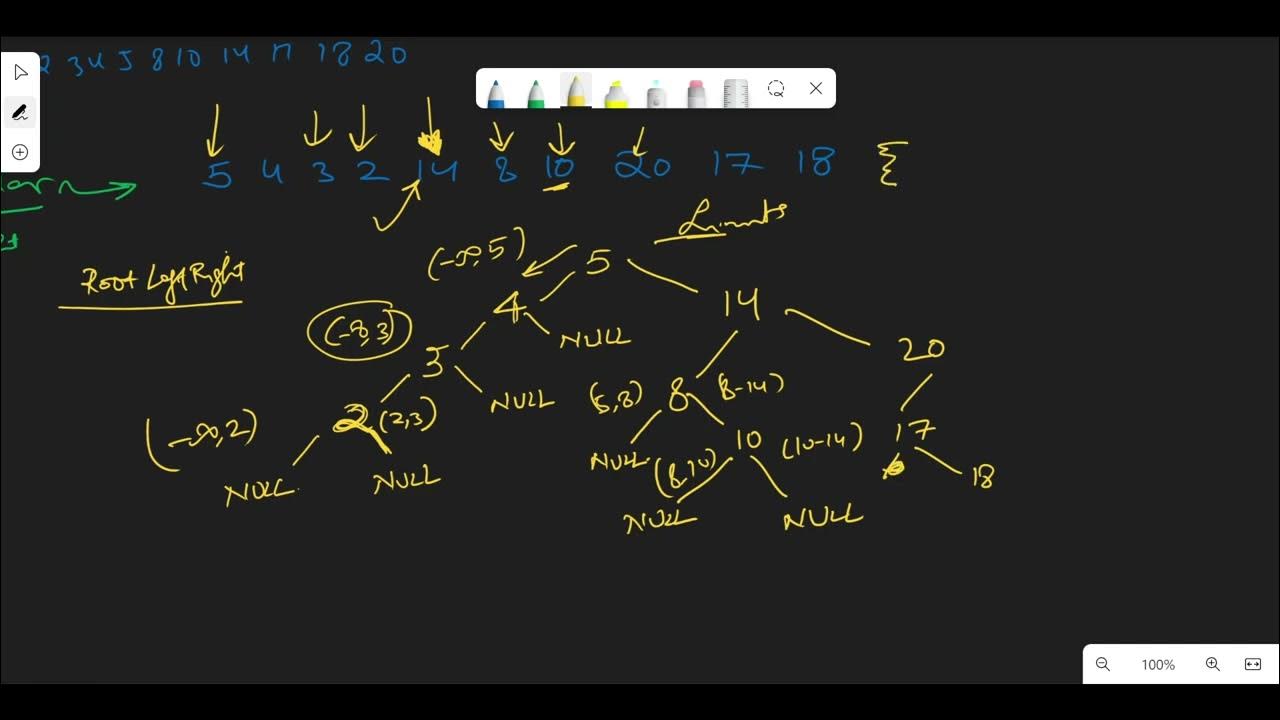 2 3 4 5 8 10 14 17 18 20
5 4 3 2 14 8 10 20 17 18
Limits
Root Left Right
(-∞, 5) 5
4 14
(-∞, 3) NULL
3 20
NULL (5, 8) 8 (8-14)
(-∞, 2) 2 (2, 3)
NULL 10 (10-14) 17
NULL NULL (8, 10) 18
NULL NULL
100%